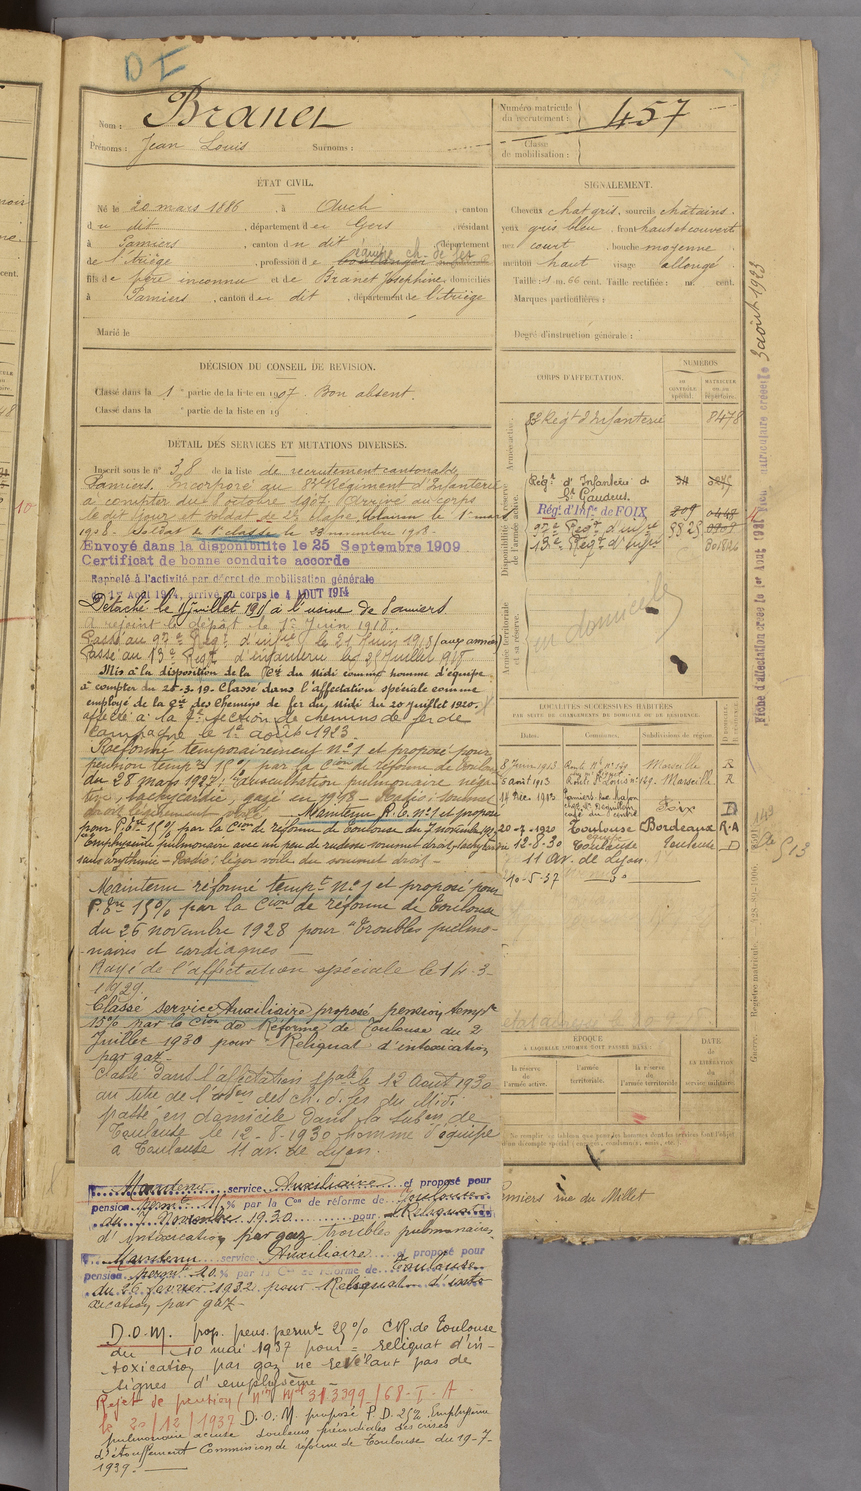 DI
Nom : Branet
Prénoms : Jean Louis Surnoms :
Numéro matricule
du recrutement : 457
Classe
de mobilisation :
ÉTAT CIVIL.
Né le 20 mars 1886, à Auch, canton
du dit, département du Gers, résidant
à Pamiers, canton du dit, département
équipe ch. de fer
de l'Ariège, profession de boulanger
fils de père inconnu et de Branet Joséphine, domiciliés
à Pamiers, canton du dit, département de l'Ariège
Marié le
SIGNALEMENT.
Cheveux chat gris, sourcils châtains.
yeux gris bleu, front haut et couvert
nez court, bouche moyenne
menton haut visage allongé
Taille : 1 m. 66 cent. Taille rectifiée : m. cent.
Marques particulières :
Degré d'instruction générale :
DÉCISION DU CONSEIL DE REVISION.
Classé dans la 1e partie de la liste en 1907. Bon absent.
Classé dans la e partie de la liste en 19
DÉTAIL DES SERVICES ET MUTATIONS DIVERSES.
Inscrit sous le n° 38 de la liste de recrutement cantonal de
Pamiers. Incorporé au 83e Régiment d'Infanterie
à compter du 8 octobre 1907. Arrivé au corps
le dit jour et soldat de 2e classe, le 1er mars
1908. Soldat de 1e classe le 23 novembre 1908.
Envoyé dans la disponibilité le 25 Septembre 1909
Certificat de bonne conduite accordé
Rappelé à l'activité par décret de mobilisation générale
du 1er Août 1914, arrivé au corps le 4 AOUT 1914
Détaché le juillet 1915 à l'usine de Pamiers
A rejoint le dépôt le 1er Juin 1918.
Passé au 97e Régt d'infie le 21 Juin 1918 (aux armées)
Passé au 13e Régt d'infanterie le 25 Juillet 1918.
Mis à la disposition de la Cie du Midi comme homme d'équipe
à compter du 20-3-19. Classé dans l'affectation spéciale comme
employé de la Cie des Chemins de fer du Midi du 20 juillet 1920.
affecté à la 4e section de chemins de fer de
campagne le 1er août 1923.
Réformé temporairement n°1 et proposé pour
pension tempre 15% par la Cion de réforme de Toulouse
du 28 mars 1927 ; auscultation pulmonaire néga-
tive, tachycardie, gazé en 1918 - Radio : sommet
droit légèrement voilé. Maintenu R.T. n°1 et proposé
pour P. tre 15% par la Cion de réforme de Toulouse du 7 novembre 1927
Emphysème pulmonaire avec un peu de rudesse sommet droit, tachycardie
sans arythmie - Radio : léger voile du sommet droit -
Maintenu réformé tempt n°1 et proposé pour
P. tre 15% par la Cion de réforme de Toulouse
du 26 novembre 1928 pour "Troubles pulmo-
-naires et cardiaques -
Rayé de l'affectation spéciale le 14-3-
1929.
Classé service Auxiliaire proposé pension tempre
15% par la Cion de Réforme de Toulouse du 2
Juillet 1930 pour "Reliquat d'intoxication
par gaz -
Classé dans l'affectation spale le 12 Août 1930
au titre de l' des ch. d. fer du Midi.
passé en domicile dans la subon de
Toulouse le 12-8-1930 homme d'équipe
à Toulouse 11 av. de Lyon.
Maintenu service Auxiliaire et proposé pour
pension % par la Con de réforme de Toulouse
du Novembre 1930 pour Reliquat
d'intoxication par gaz troubles pulmonaires.
Maintenu service Auxiliaire et proposé pour
pension permte 20 % par la Con de réforme de Toulouse
du 26 février 1932 pour Reliquat d'into-
xication par gaz -
D.O.M. prop. pens. permte 25% CR. de Toulouse
du 10 mai 1937 pour = reliquat d'in-
toxication par gaz ne révélant pas de
signes d'emphysème -
Rejet de pension (n° 313399/68-I-A
le 20/12/1937 D.O.M. proposé P.D. 25% Emphysème
pulmonaire accusé douleurs précordiales des crises
d'étouffement Commission de réforme de Toulouse du 19-7-
1939.
CORPS D'AFFECTATION.
NUMÉROS
AU CONTRÔLE SPÉCIAL.
MATRICULE OU AU RÉPERTOIRE.
Armée active.
83e Régt d'Infanterie 8478
Disponibilité et réserve de l'armée active.
Régt d'Infanterie de
St Gaudens.
Régt d'Infie de FOIX
97e Régt d'infie
13e Régt d'Infie
Armée territoriale et sa réserve.
en domicile
LOCALITÉS SUCCESSIVES HABITÉES
PAR SUITE DE CHANGEMENTS DE DOMICILE OU DE RÉSIDENCE.
Dates. Communes. Subdivisions de région.
8 Juin 1913 Marseille R
5 août 1913 Marseille R
14 Déc. 1913 Foix D
20-7-1920 Toulouse Bordeaux R.A
12-8-30 Toulouse Toulouse D
11 av. de Lyon
10-5-37
ÉPOQUE
À LAQUELLE L'HOMME DOIT PASSER DANS :
la réserve de l'armée active.
l'armée territoriale.
la réserve de l'armée territoriale
DATE de LA LIBÉRATION du service militaire.
Pamiers rue du Millet
Fiche d'affectation créée le 1er Août 1921
matriculaire créée le 3 août 1923
Guerre. — Registre matricule.